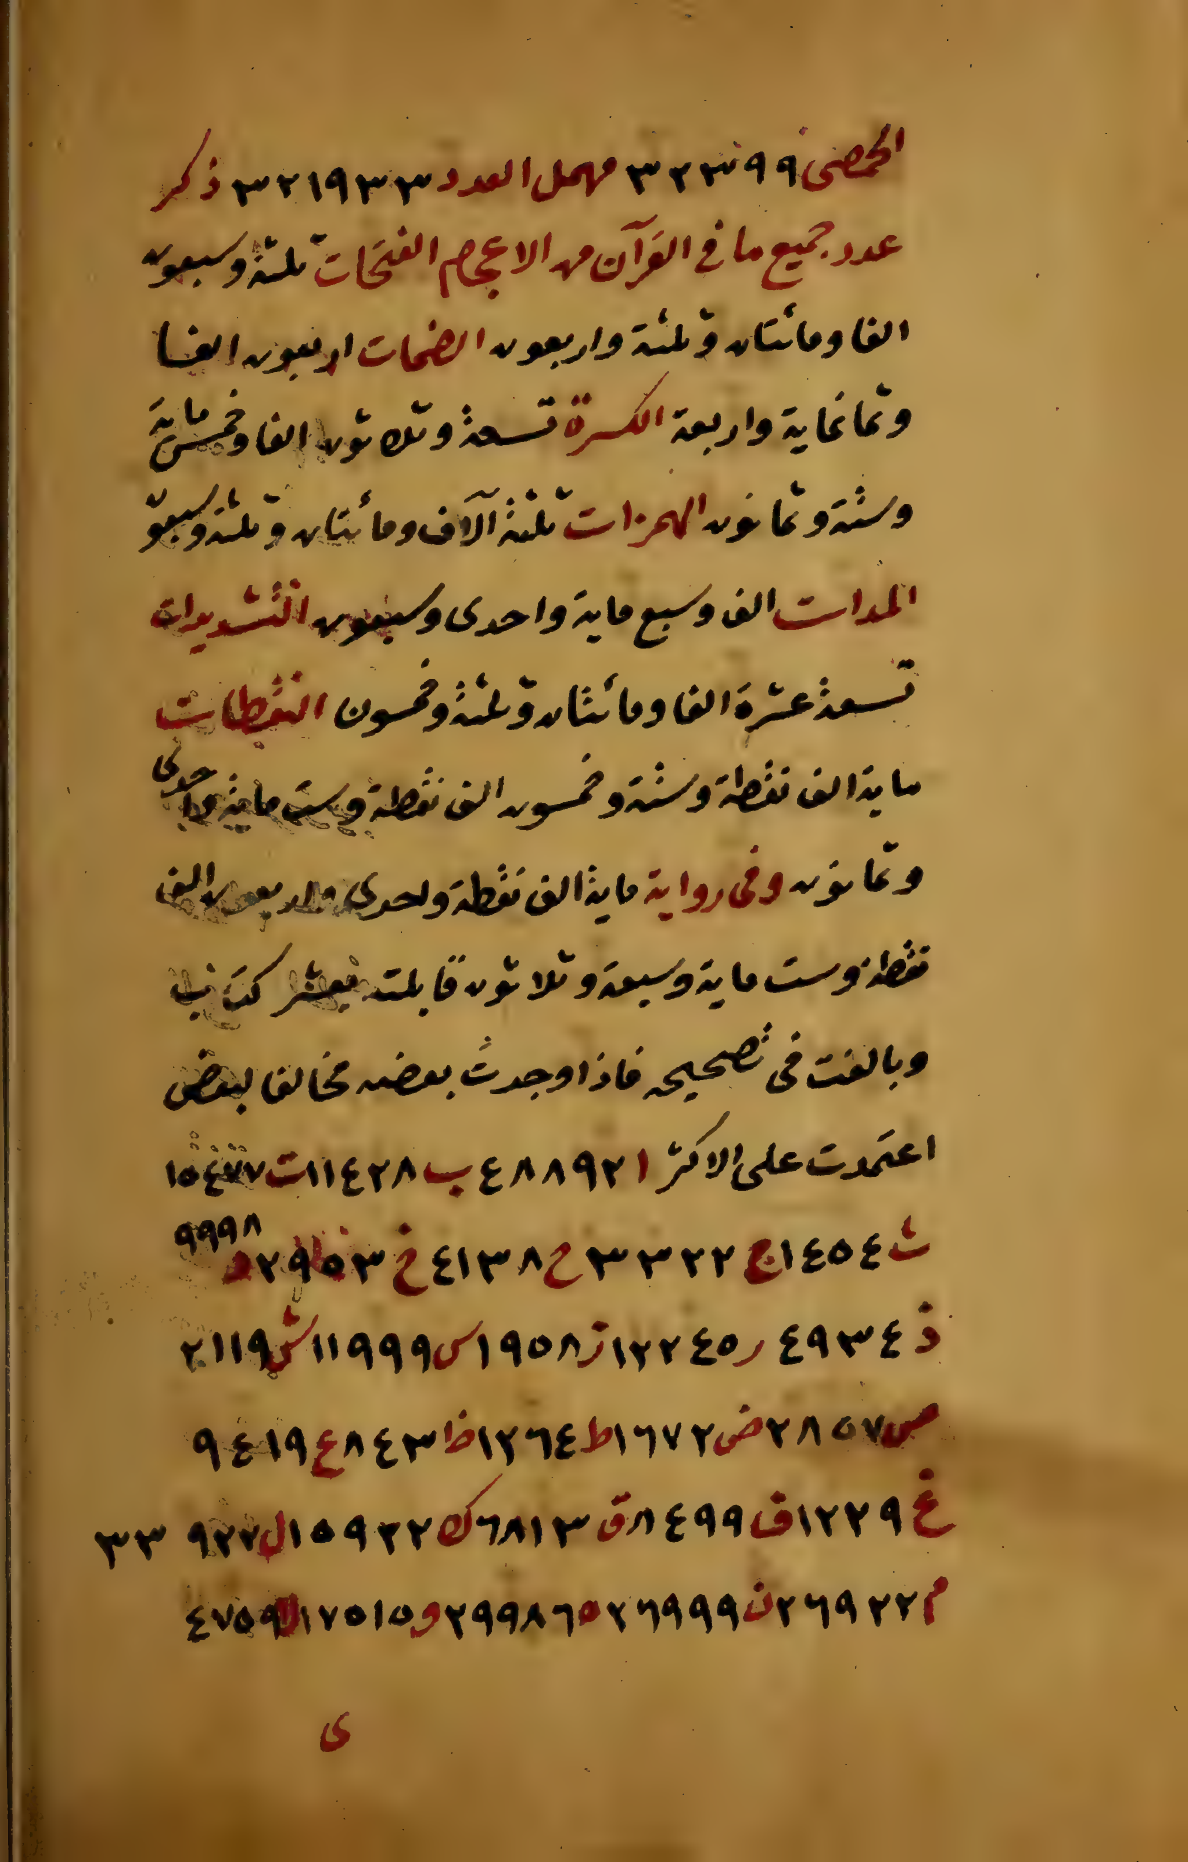 الحمصى ٣٢٣٩٩ مهمل العدد ٣٢١٩٣٣ ذكر
عدد جميع ما فى القرآن من الاعجام الفتحات ثلثة وسبعون
الفا ومائتان وثلثة واربعون الضمات اربعون الفا
وثمانماية واربعة الكسرة تسعة وثلاثون الفا وخمس ماية
وستة وثمانون الهمزات ثلثة آلاف ومائتان وثلثة وسبعو
المدات الف وسبع ماية واحدى وسبعون التشديدات
تسعة عشرة الفا ومائتان وثلثة وخمسون النقطات
ماية الف نقطة وستة وخمسون الف نقطة وست ماية واحدى
وثمانون وفى رواية ماية الف نقطة واحدى واربعون الف
نقطة وست ماية وسبعة وثلاثون قابلت بعشر كتب
وبالغت فى تصحيحه فاذا وجدت بعضه مخالفا لبعض
اعتمدت على الاكثر ا ٤٨٨٩٢ ب ١١٤٢٨ ت ١٥٤٧٧
ث ١٤٥٤ ج ٣٣٢٢ ح ٤١٣٨ خ ٢٩٥٣ د ٩٩٩٨
ذ ٤٩٣٤ ر ١٢٢٤٥ ز ١٩٥٨ س ١١٩٩٩ ش ٢١١٩
ص ٢٨٥٧ ض ١٦٧٢ ط ١٢٦٤ ظ ٨٤٣ ع ٩٤١٩
غ ١٢٢٩ ف ٨٤٩٩ ق ٦٨١٣ ك ١٥٩٢٢ ل ٣٣٩٢٢
م ٢٦٩٢٢ ن ٢٦٩٩٩ ه ٢٩٩٨٦ و ١٧٥١٥ لا ٤٧٥٩
ى